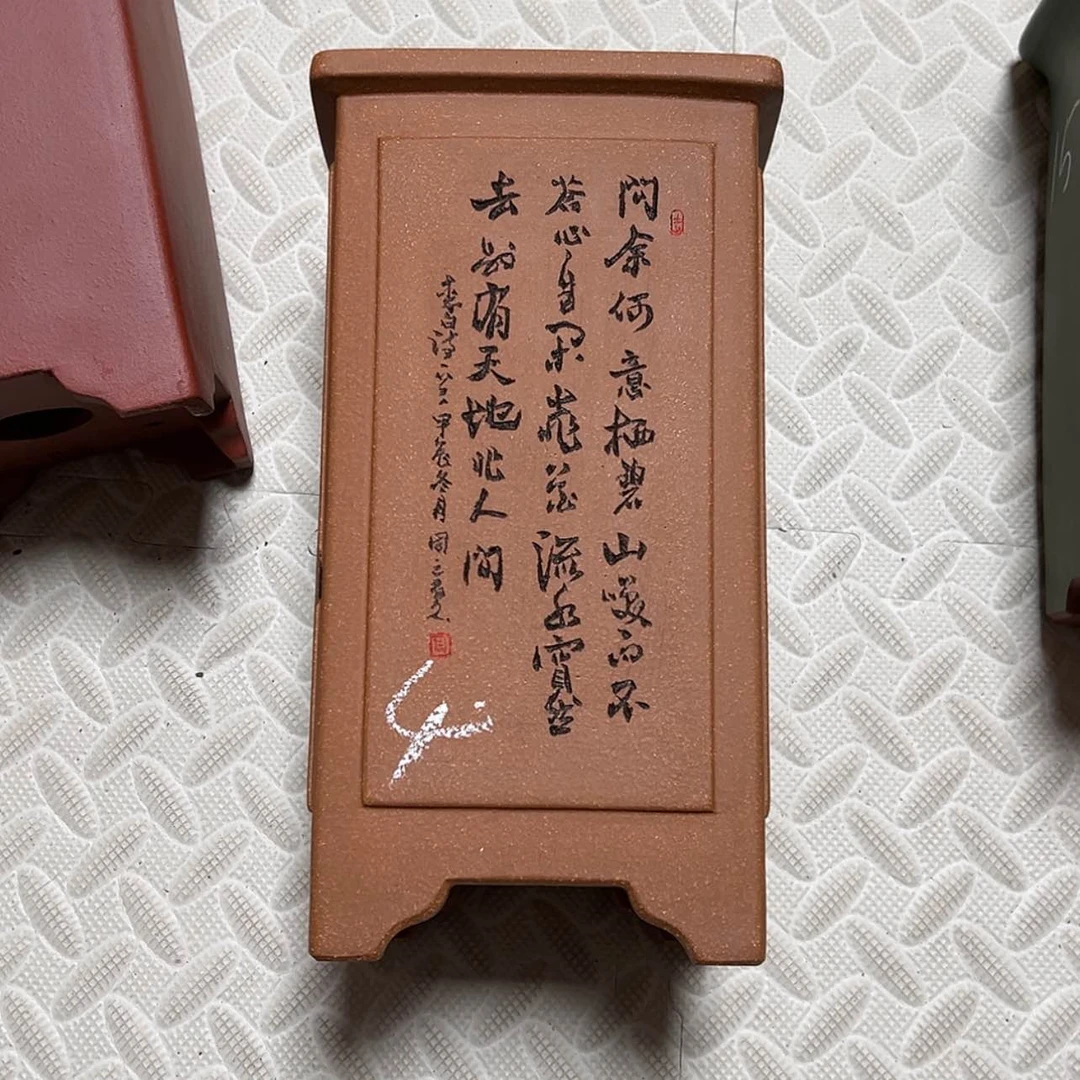 問余何意栖碧山咲而不
答心自閑桃花流水窅然
去別有天地非人間
李白詩一首甲辰冬月周